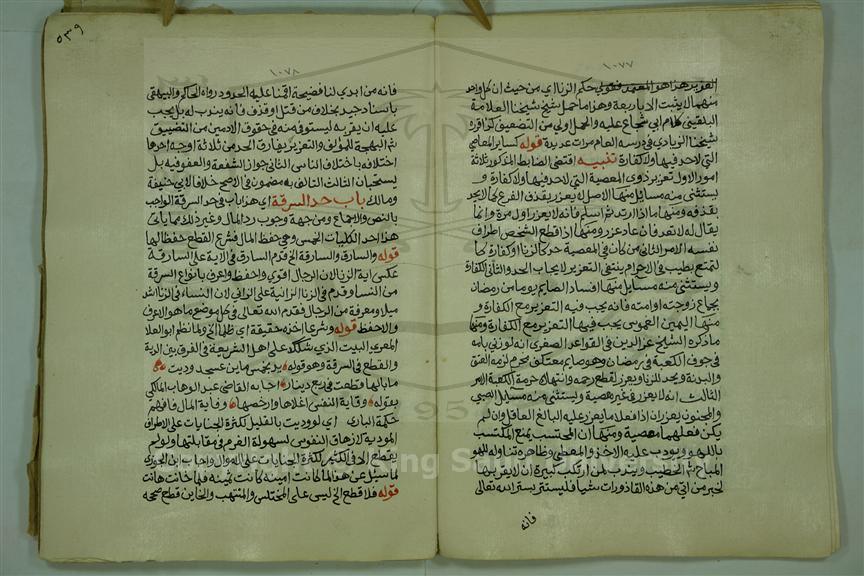 ١٠٧٧
التعزير هذا هو المعتمد فقولي حكم الزنا اي من حيث ان كل واحد
منهما لا يثبت الا باربعة وهذا ما حمل شيخ شيخنا العلامة
البلقيني كلام ابي شجاع عليه والحمل اولي من التضعيف كذا قرره
شيخنا الزيادي في درسه العام مرات عديدة قوله كساير المعاصي
التي لا حد فيها ولا كفارة تنبيه اقتضي الضابط المذكور ثلاثة
امور الاول تعزير ذوي المعصية التي لا حد فيها ولا كفارة و
يستثني منه مسايل منها الاصل لا يعزر بقذف الفرع كما لا يحد
بقذفه ومنها ما اذا ارتد ثم اسلم فانه لا يعزر اول مرة وانما
يقال له لا تعد فان عاد عزر ومنها اذا قطع الشخص اطراف
نفسه الامر الثاني من كان في المعصية حد كالزنا او كفارة كا
لتمتع بطيب في الاحرام ينتفي التعزير لايجاب الحد والثاني الكفارة
ويستثني منه مسايل منها افساد الصايم يوما من رمضان
بجماع زوجته او امته فانه يجب فيه التعزير مع الكفارة و
منها اليمين الغموس يجب فيها التعزير مع الكفارة ومنها
ما ذكره الشيخ عز الدين في القواعد الصغري انه لو زني بامه
في جوف الكعبة في رمضان وهو صايم معتكف محرم لزمه العتق
والبدنة ويحد للزنا ويعزر لقطع رحمه وانتهاك حرمة الكعبة الامر
الثالث انه لا يعزر في غير معصية ويستثني منه مسايل الصبي
والمجنون يعزران اذا فعلا ما يعزر عليه البالغ العاقل وان لم
يكن فعلهما معصية ومنها ان المحتسب يمنع المكتسب
باللهو ويودب عليه الاخذ والمعطي وظاهره تناوله للهو
المباح ثم الخطيب ويندب لمن ارتكب كبيرة ان لا يقر بها
لخبر من اتي من هذه القاذورات شيا فليستتر بستر الله تعالي
فانه
٥٣٩
١٠٧٨
فانه من ابدي لنا فضيحة اقمنا عليه الحدود رواه الحاكم والبيهقي
باسناد جيد بخلاف من قتل او قذف فانه يندب له بل يجب
عليه ان يقر به ليستوفي منه في حقوق الادمين من التضييق
ثم البهيمة للمولف والتعزير يفارق الحد من ثلاثة اوجه احدها
اختلافه باختلاف الناس الثاني جواز الشفعة والعفو فيه بل
يستحبان الثالث التالف به مضمون في الاصح خلافا لابي حنيفة
ومالك باب حد السرقة اي هذا باب في حد السرقة الواجب
بالنص والاجماع ومن جهة وجوب رد المال وغير ذلك مما ياتي
هذا احد الكليات الخمس وهي حفظ المال فشرع القطع حفظا لها
قوله والسارق والسارقة الخ قدم السارق في الاية على السارقة
عكس اية الزنا لان الرجال اقوي واحفظ واعرف بانواع السرقة
من النسا وقدم في الزنا الزانية علي الزاني لان النسا في الزنا اشد
ميلا ومعرفة من الرجال فقدم الله تعالي في كل موضع ما هو الاعرف
والاحفظ قوله وشرعا اخذه حقيقة اي ظلما الخ ولما نظم ابو العلا
المعري البيت الذي شكك على اهل الشريعة في الفرق بين الدية
والقطع في السرقة وهو قوله يد بخمس ماين عسجد وديت
ما بالها قطعت في ربع دينار اجابه القاضي عبد الوهاب المالكي
بقوله وقاية النفس اغلاها وارخصها وقاية المال فافهم
حكمة الباري اي لو وديت بالقليل لكثرة الجنايات على الاطراف
المودية لازهاق النفوس لسهولة الغرم في مقابلتها ولو لم
يقطع الا في الكثير لكثرة الجنايات على الاموال واجاب ابن الجوزي
لما سيل عن هذا لما كانت امينة كانت ثمينة فلما خانت هانت
قوله فلا قطع الخ ليس على المختلس والمنتهب والخاين قطع صححه